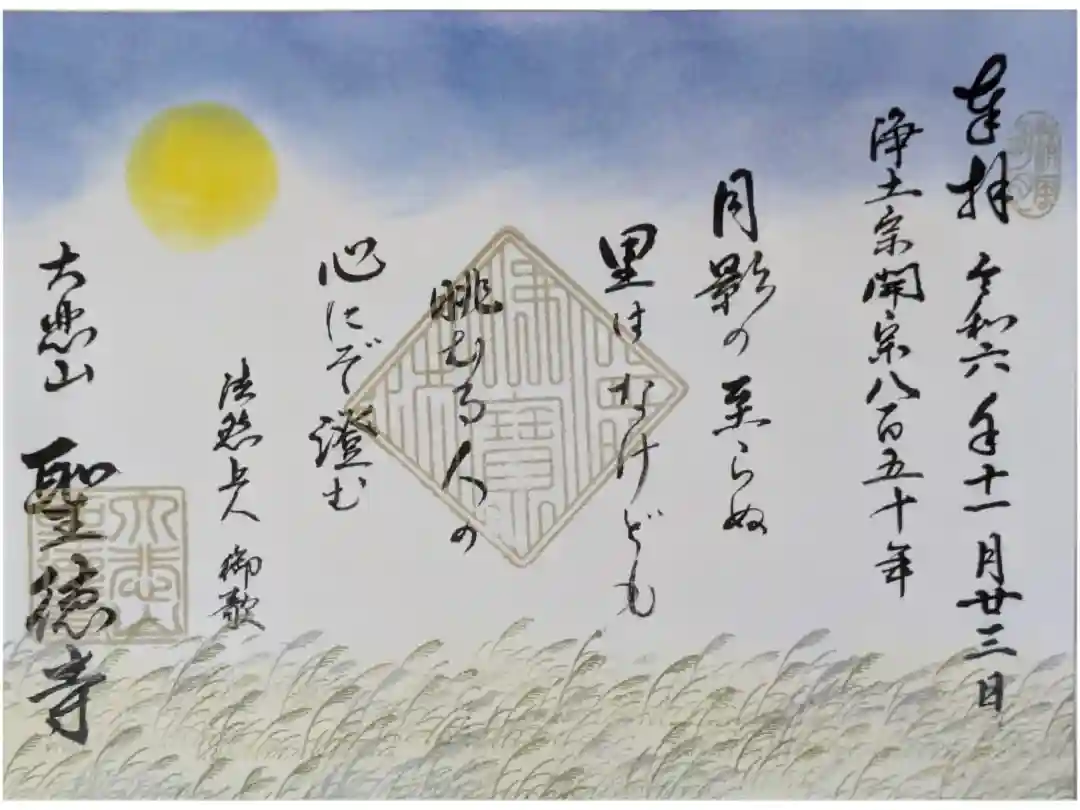 奉拝 令和六年十一月廿三日
浄土宗開宗八百五十年
月影の至らぬ
里はなけども
眺むる人の
心にぞ澄む
法然上人 御歌
大悲山 聖徳寺